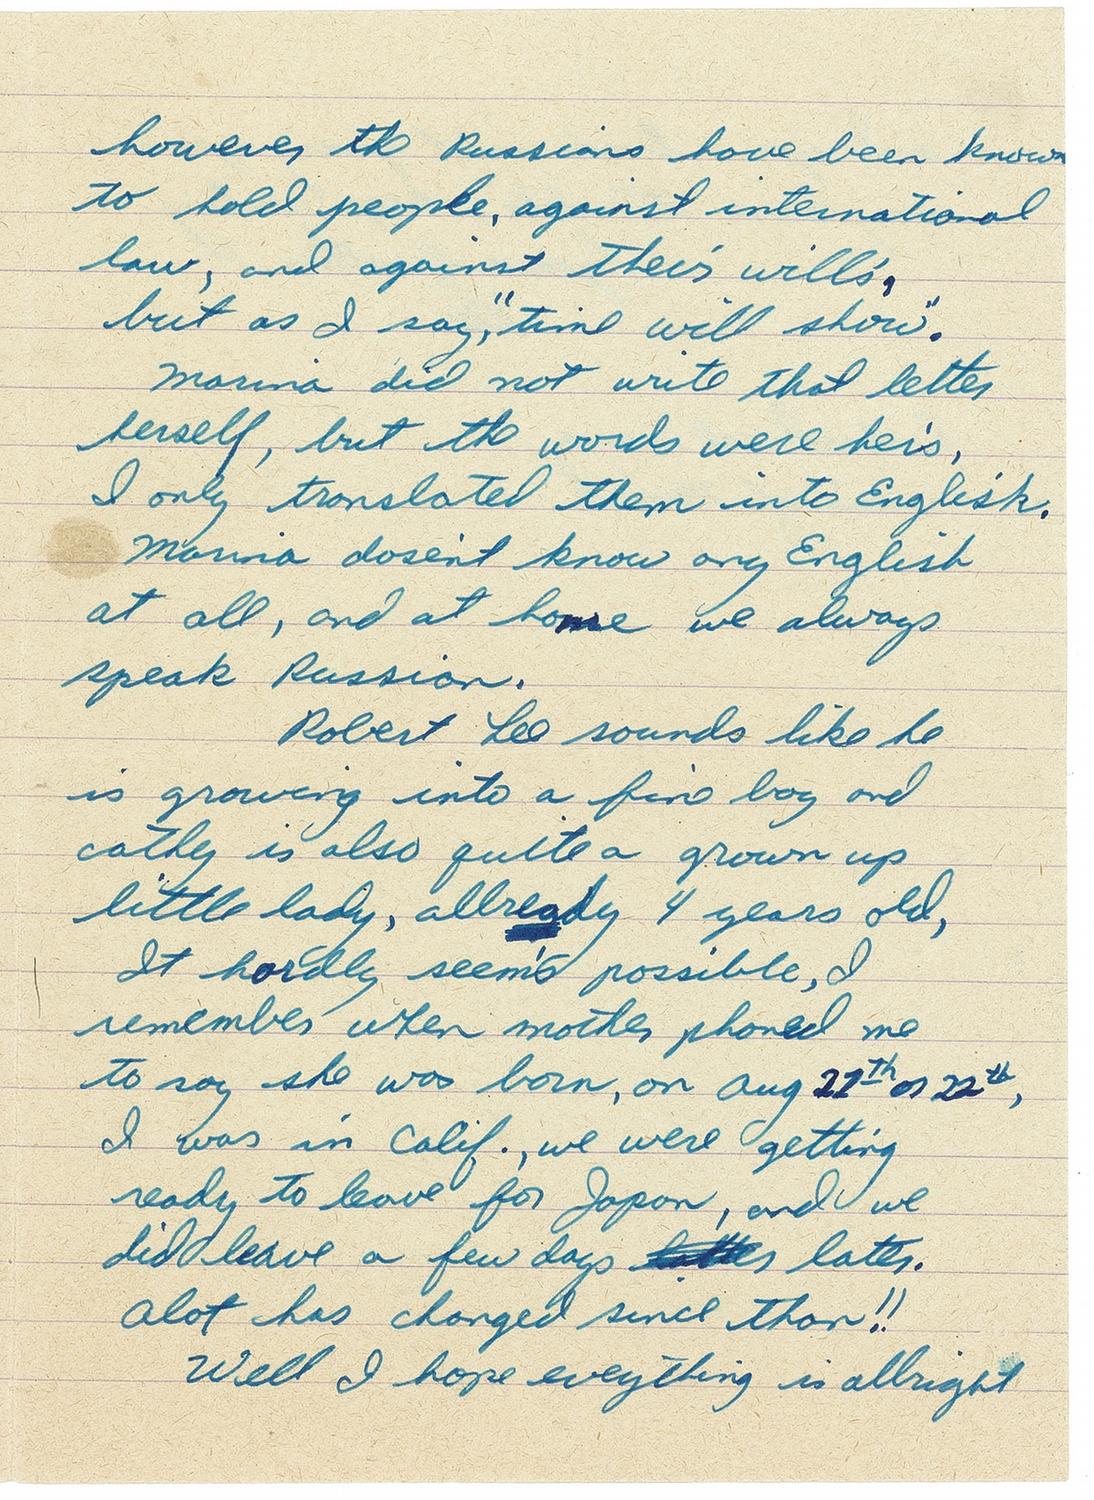 however the Russians have been known
to hold people, against international
law, and against their wills,
but as I say, "time will show".
Marina did not write that letter
herself, but the words were hers,
I only translated them into English.
Marina dosen't know any English
at all, and at home we always
speak Russian.
Robert Lee sounds like he
is growing into a fine boy and
cathy is also quite a grown up
little lady, allready 4 years old,
It hardly seem's possible, I
remember when mother phoned me
to say she was born, on Aug 21th or 22th,
I was in Calif., we were getting
ready to leave for Japan, and we
did leave a few days later.
Alot has changed since than!!
Well I hope eveything is allright